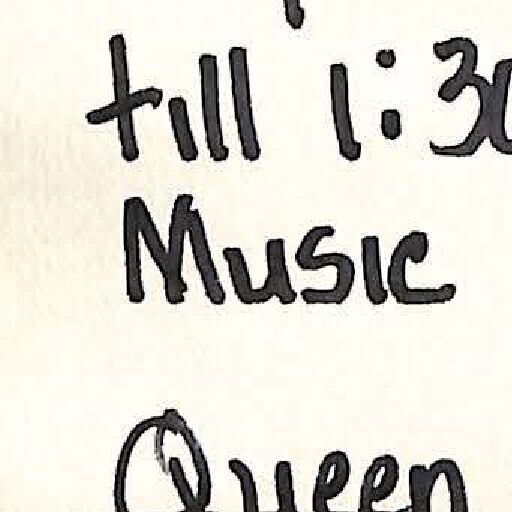 till 1:30
Music
Queen